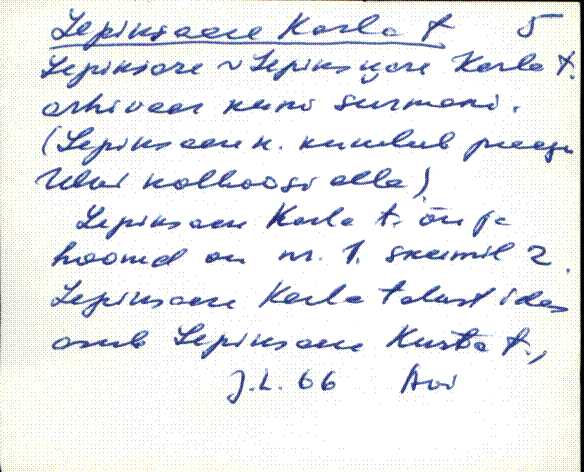 Lepiksaare Karla t 5
Lepiksare ~ Lepiksyare Karla t.
arhiveer kuni surmani.
(Lepiksaare k. kuulub praegu
Uhui kolhoosi alla)
Lepiksaare Karla t. õu ja
hooned on nr. 1. skeemil 2.
Lepiksaare Karla talust idas
asub Lepiksaare Kusta t.,
J.L. 66 Avi